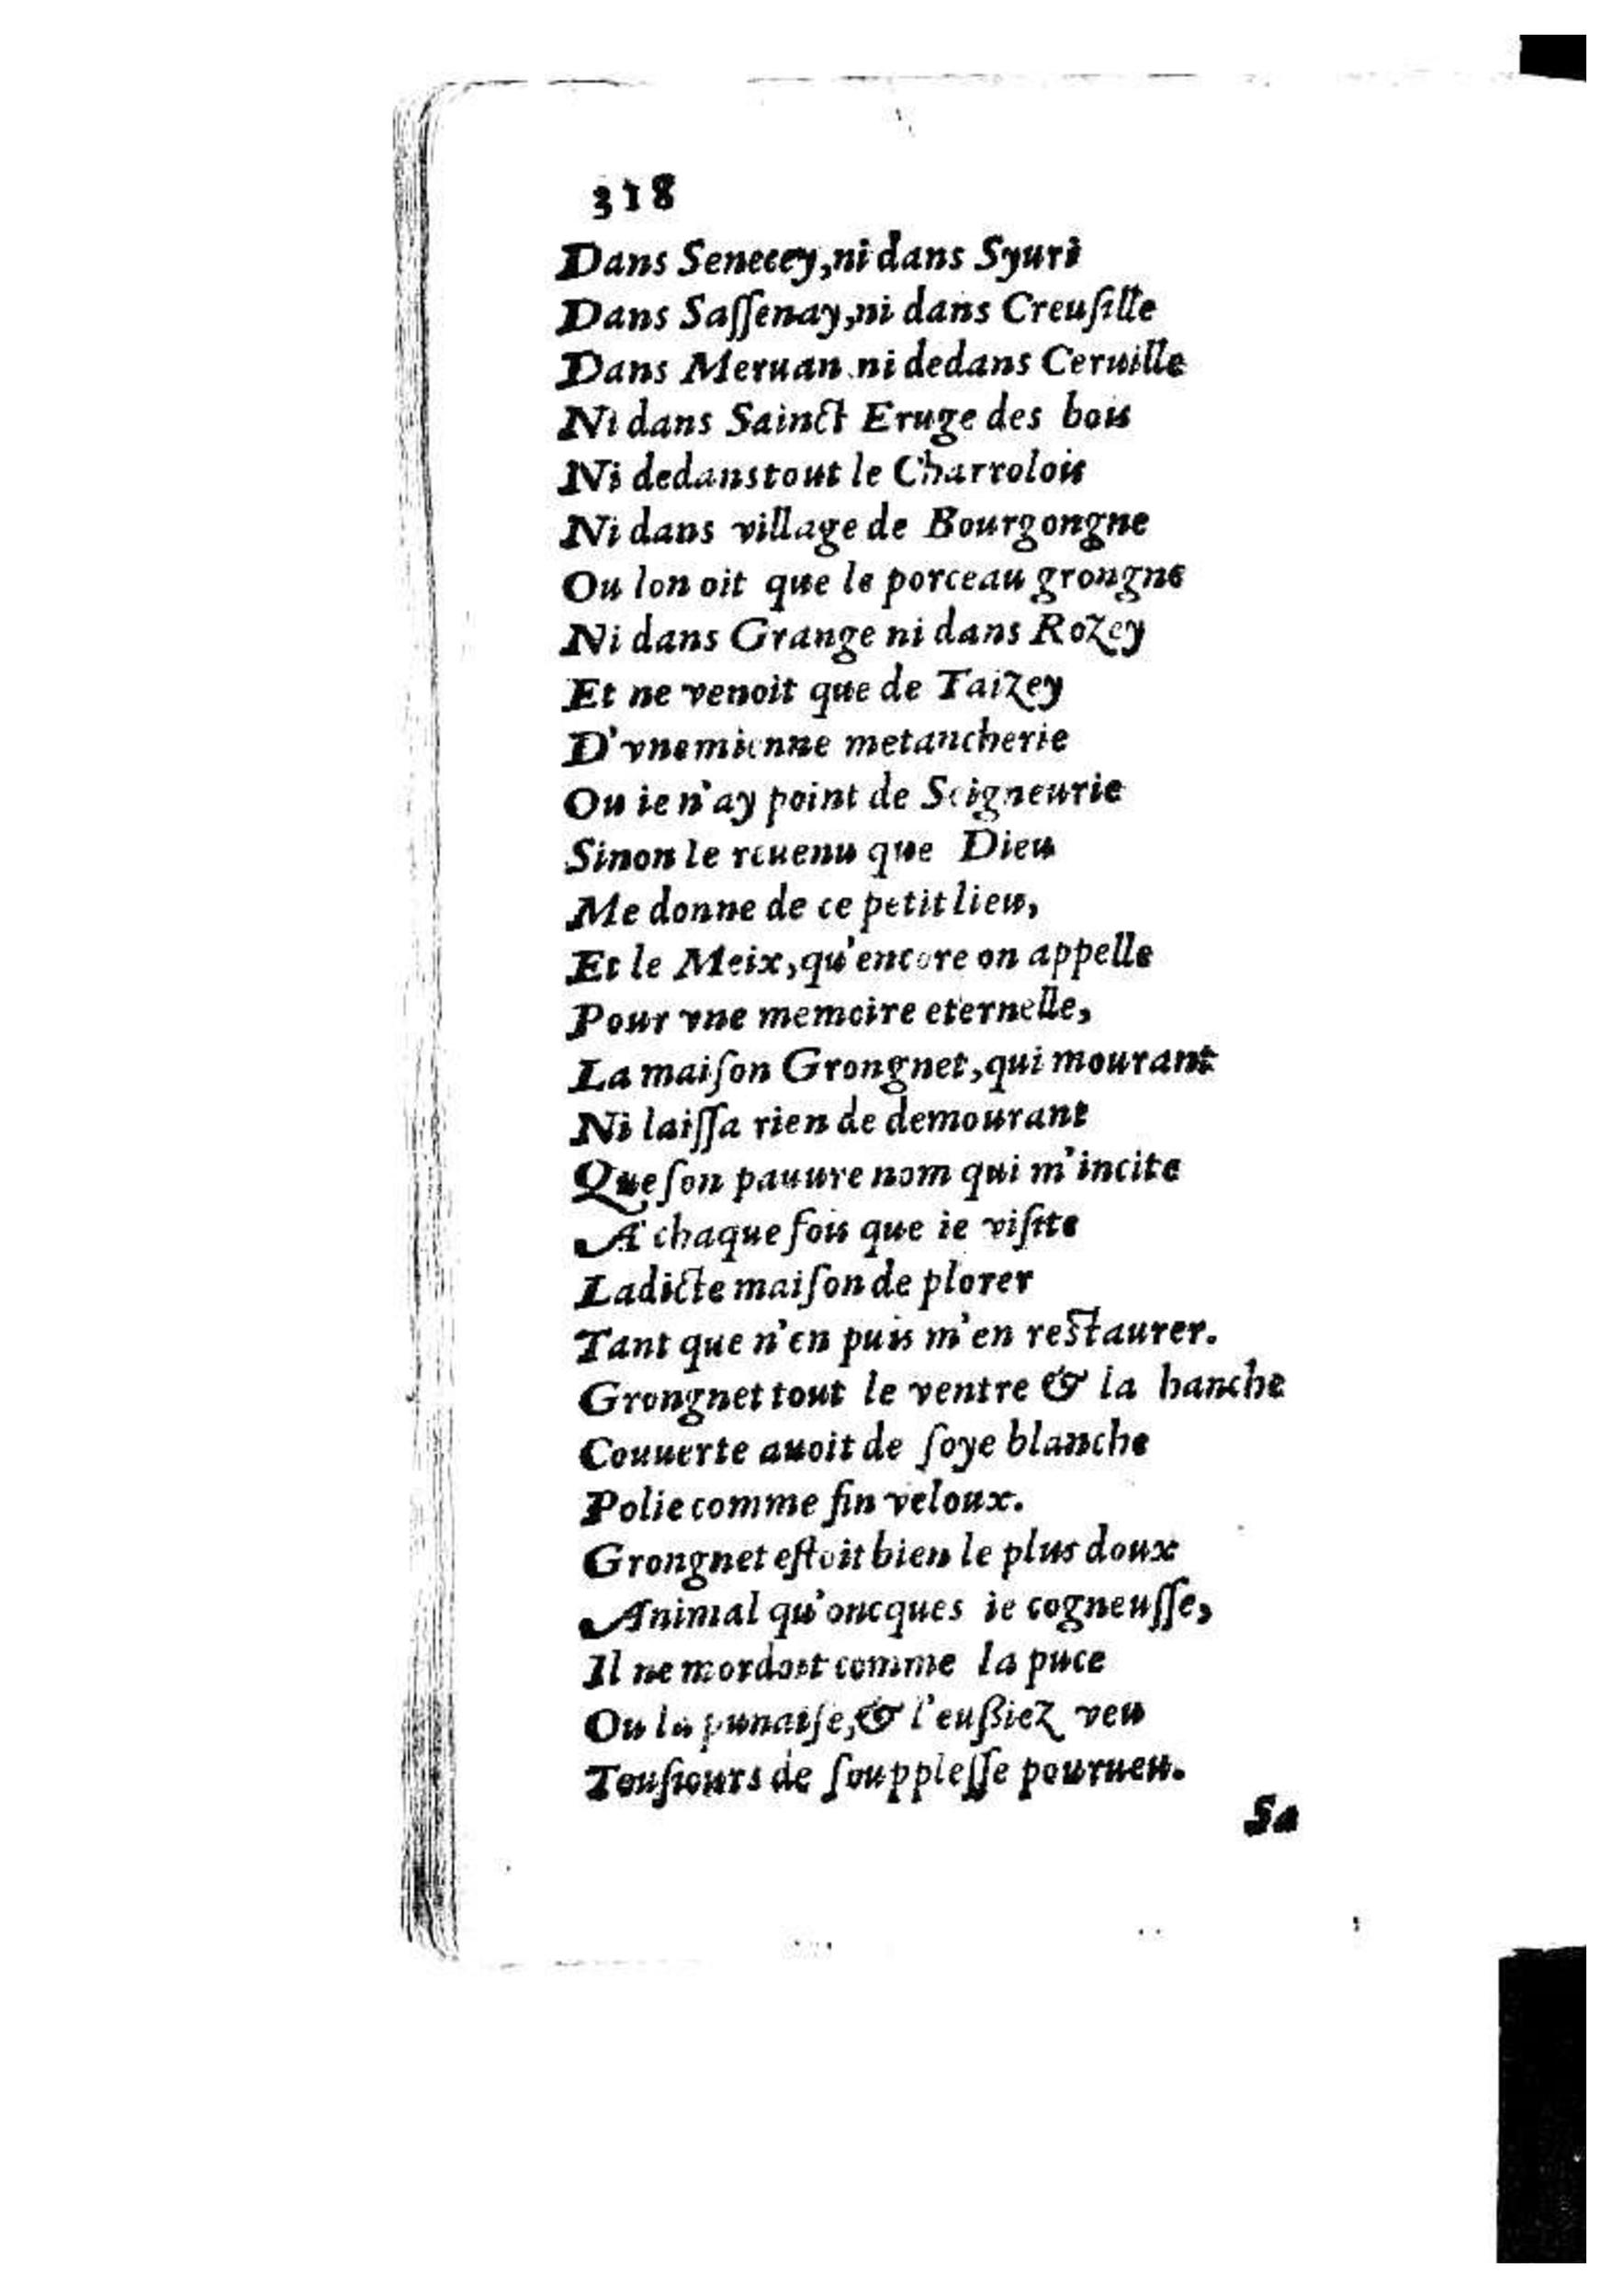 318
Dans Senecey, ni dans Syuri
Dans Saſſenay, ni dans Creuſille
Dans Meruan ni dedans Ceruille
Ni dans Sainct Eruge des bois
Ni dedans tout le Charrolois
Ni dans village de Bourgongne
Ou lon oit que le porceau grongne
Ni dans Grange ni dans Rozey
Et ne venoit que de Taizey
D'vne mienne metancherie
Ou ie n'ay point de Seigneurie
Sinon le reuenu que Dieu
Me donne de ce petit lieu,
Et le Meix, qu'encore on appelle
Pour vne memoire eternelle,
La maiſon Grongnet, qui mourant
Ni laiſſa rien de demourant
Que ſon pauure nom qui m'incite
A chaque fois que ie viſite
Ladicte maiſon de plorer
Tant que n'en puis m'en restaurer.
Grongnet tout le ventre & la hanche
Couuerte auoit de ſoye blanche
Polie comme fin veloux.
Grongnet eſtoit bien le plus doux
Animal qu'oncques ie cogneuſſe,
Il ne mordoit comme la puce
Ou la punaiſe, & l'eußiez veu
Touſiours de ſouppleſſe pourueu.
Sa